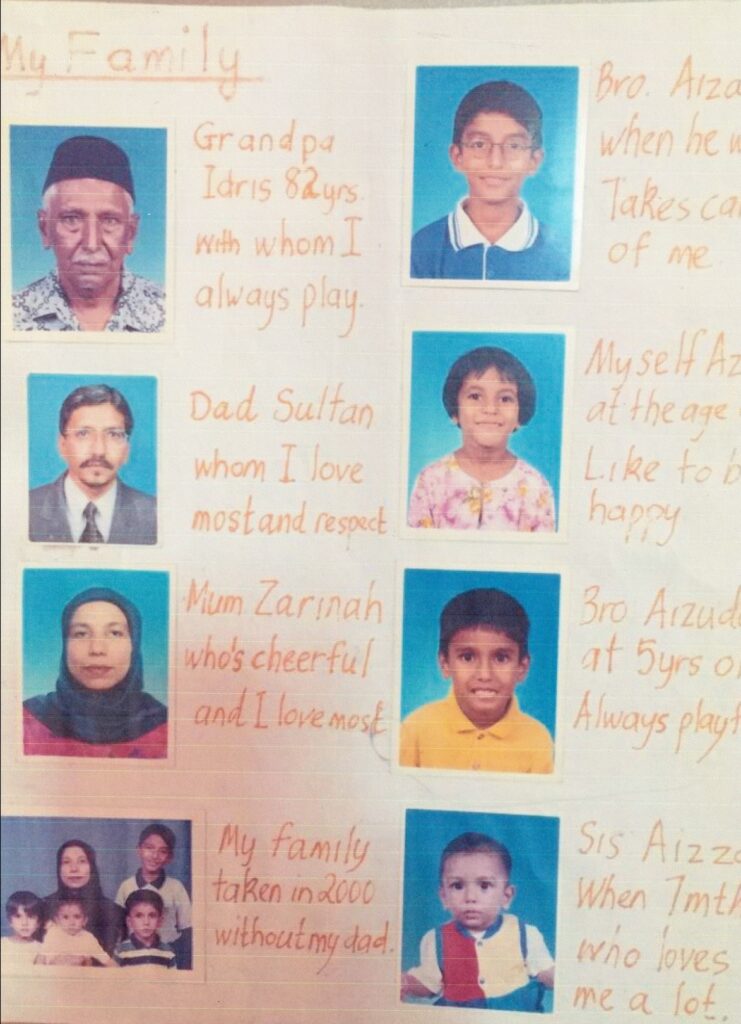 My Family
Grandpa
Idris 82yrs.
with whom I
always play.
Dad Sultan
whom I love
most and respect
Mum Zarinah
who's cheerful
and I love most
My family
taken in 2000
without my dad.
Bro.
when he
Takes
of me
Myself
at the age
Like to
happy
Bro
at 5yrs
Always
Sis
When 7mth
who loves
me a lot.